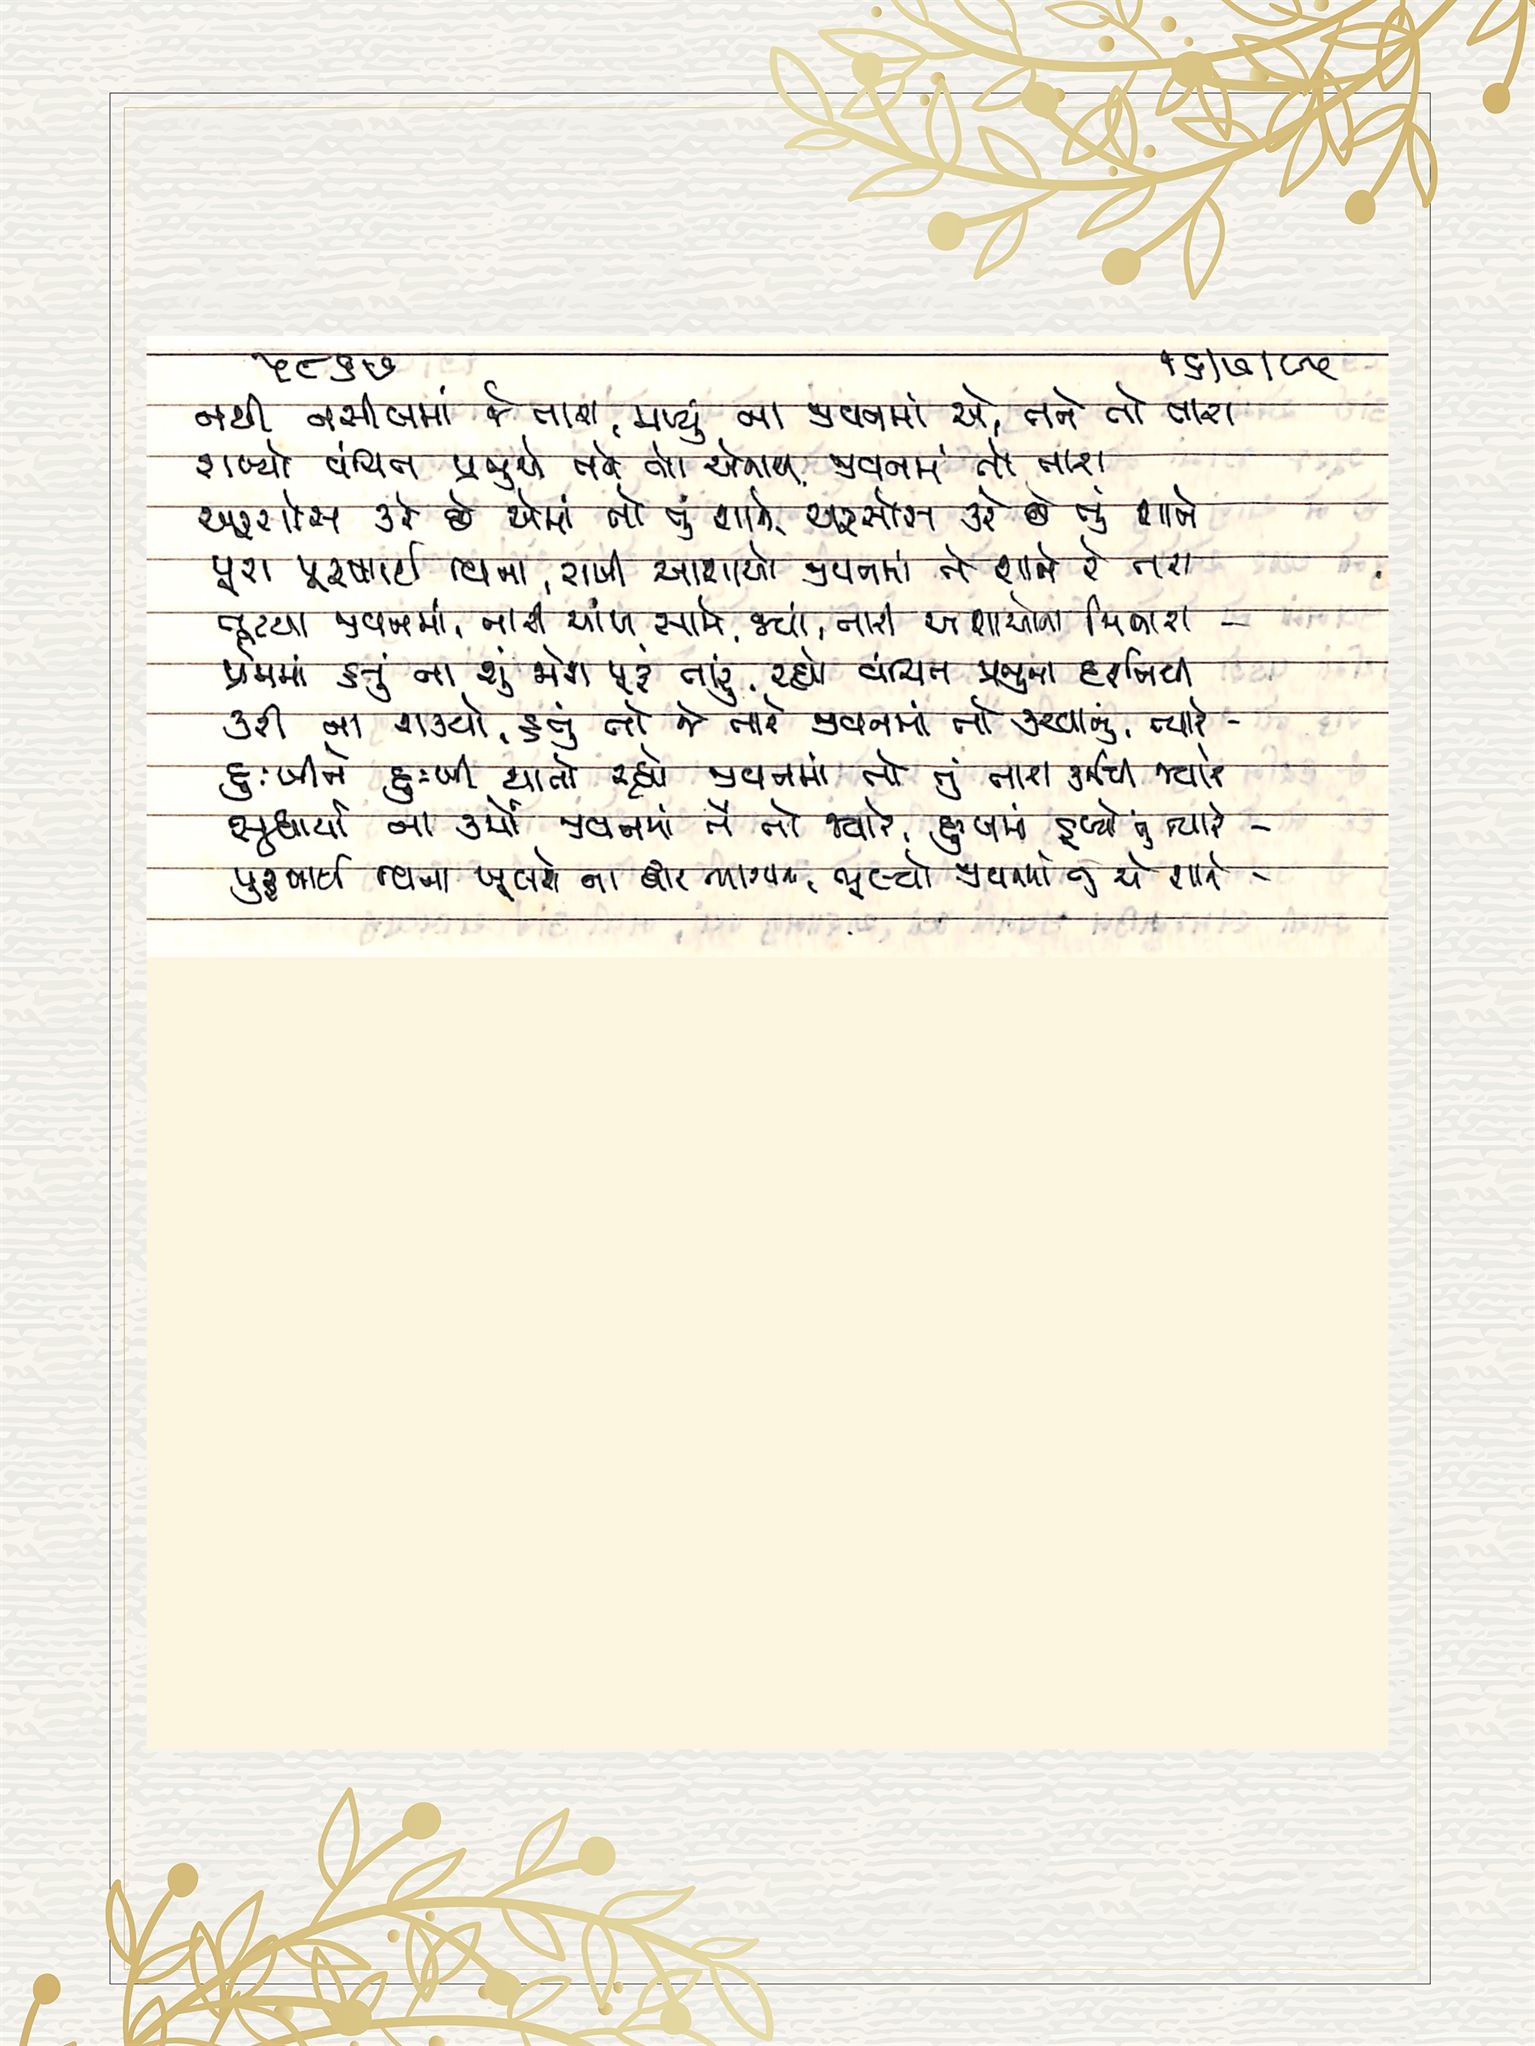 ૫૮૬૭ ૧૬/૭/૯૫
નથી નસીબમાં જે તારા, મળ્યું ના જીવનમાં એ, તને તો તારા
રાખ્યો વંચિત પ્રભુએ તને જીવનમાં તો તારા
અફસોસ કરે છે એમાં તો તું શાને, અફસોસ કરે છે તું શાને
પૂરા પુરુષાર્થ વિના, રાખી આશાઓ જીવનમાં તેં શાને રે તારા
તૂટયા જીવનમાં, તારી આંખ સામે, જ્યાં, તારી આશાઓના મિનારા -
પ્રેમમાં હતું ના શું મારા પૂરું તારું, રહ્યો વંચિત પ્રભુના
કરી ના શક્યો, હતું તો જે તારે જીવનમાં તો કરવાનું, ત્યારે -
દુઃખીને દુઃખી થાતો રહ્યો જીવનમાં તો તું તારા કર્મથી જ્યારે
સુધારો ના કર્યો જીવનમાં તેં તો જ્યારે, દુઃખમાં ડૂબ્યો તું ત્યારે -
પુરુષાર્થ વિના ખૂલશે ના દ્વાર ભાગ્યના, ભૂલ્યો જીવનમાં તું એ શાને -